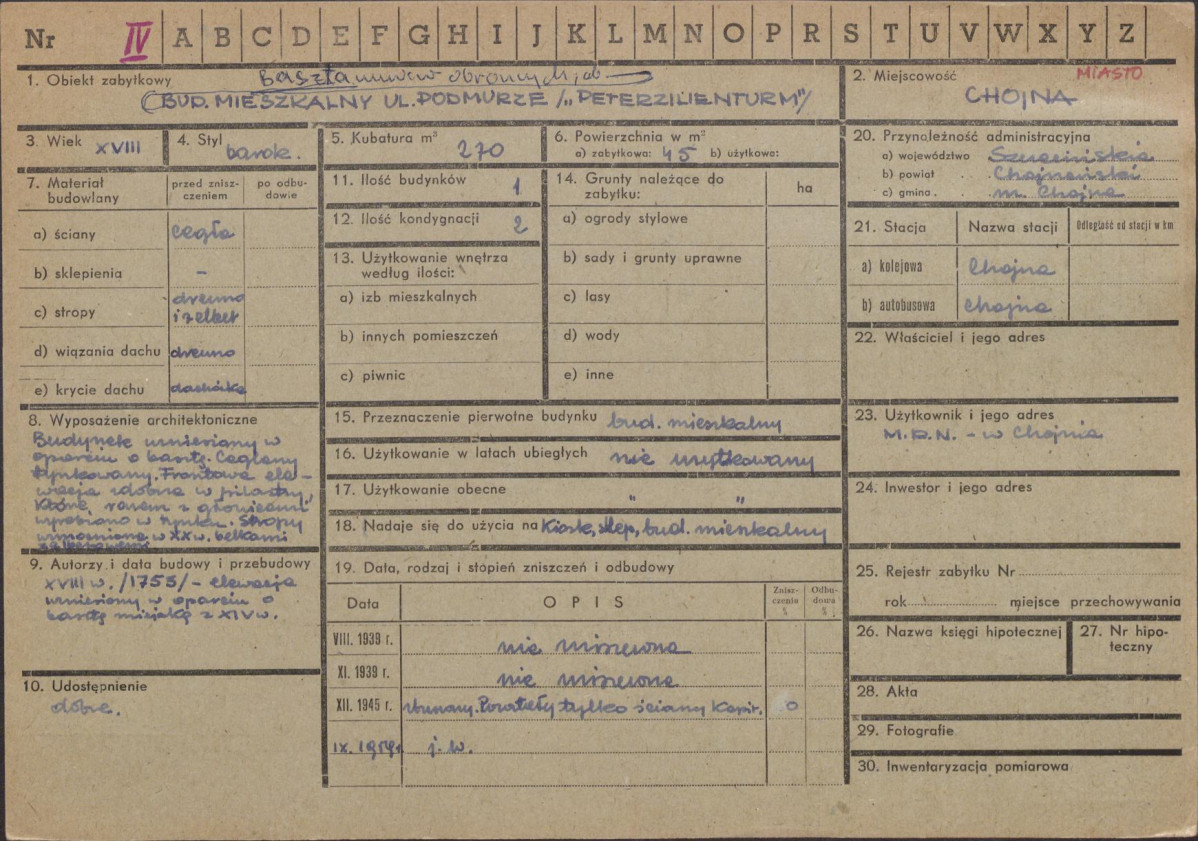 Nr IV A B C D E F G H I J K L M N O P R S T U V W X Y Z
1. Obiekt zabytkowy Baszta murów obronnych, ob
(BUD. MIESZKALNY UL. PODMURZE /„PETERZILIENTURM"/
2. Miejscowość MIASTO
CHOJNA
3. Wiek XVIII
4. Styl barok.
5. Kubatura m³ 270
6. Powierzchnia w m²
a) zabytkowa: 45 b) użytkowa:
7. Materiał budowlany
przed znisz-
czeniem
po odbu-
dowie
a) ściany cegła
b) sklepienia –
c) stropy drewno
i żelbet
d) wiązania dachu drewno
e) krycie dachu dachówka
8. Wyposażenie architektoniczne
Budynek wzniesiony w
oparciu o basztę. Ceglany
tynkowany. Frontowa ele-
wacja zdobna w pilastry,
które, razem z głowicami
wyrobiono w tynku. Stropy
wzmocnione w XX w. belkami
żelbetowemi.
9. Autorzy i data budowy i przebudowy
XVIII w. /1753/ – elewacja
wzniesiony w oparciu o
basztę miejską z XIV w.
10. Udostępnienie
dobre.
11. Ilość budynków 1
12. Ilość kondygnacji 2
13. Użytkowanie wnętrza
według ilości:
a) izb mieszkalnych
b) innych pomieszczeń
c) piwnic
14. Grunty należące do
zabytku:
ha
a) ogrody stylowe
b) sady i grunty uprawne
c) lasy
d) wody
e) inne
15. Przeznaczenie pierwotne budynku bud. mieszkalny
16. Użytkowanie w latach ubiegłych nie użytkowany
17. Użytkowanie obecne „ „
18. Nadaje się do użycia na Kiosk, sklep, bud. mieszkalny
19. Data, rodzaj i stopień zniszczeń i odbudowy
Data OPIS
Znisz-
czenia
%
Odbu-
dowa
%
VIII. 1939 r. nie niszczona
XI. 1939 r. nie niszczona
XII. 1945 r. zburzany. Pozostały tylko ściany 0
IX. 1959r j. w.
20. Przynależność administracyjna
a) województwo Szczecińskie
b) powiat Chojnański
c) gmina m. Chojna
21. Stacja Nazwa stacji Odległość od stacji w km
a) kolejowa Chojna
b) autobusowa Chojna
22. Właściciel i jego adres
23. Użytkownik i jego adres
M.R.N. – w Chojnie
24. Inwestor i jego adres
25. Rejestr zabytku Nr
rok miejsce przechowywania
26. Nazwa księgi hipotecznej
27. Nr hipo-
teczny
28. Akta
29. Fotografie
30. Inwentaryzacja pomiarowa